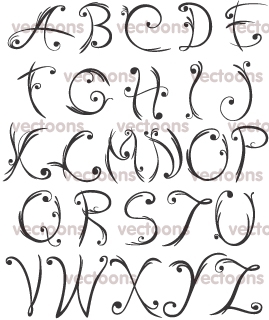 A B C D E
F G H I J
K L M N O P
Q R S T U
V W X Y Z
vectoons vectoons
vectoons vectoons
vectoons vectoons
vectoons vectoons
vectoons vectoons
vectoons vectoons